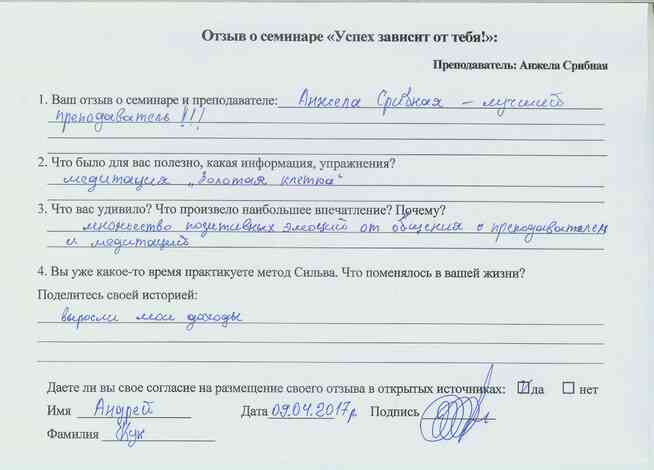 Отзыв о семинаре «Успех зависит от тебя!»:
Преподаватель: Анжела Срибная
1. Ваш отзыв о семинаре и преподавателе: Анжела Срибная – лучший
преподаватель!!!
2. Что было для вас полезно, какая информация, упражнения?
медитация „Золотая клетка“
3. Что вас удивило? Что произвело наибольшее впечатление? Почему?
множество позитивных эмоций от общения с преподавателем
и медитаций
4. Вы уже какое-то время практикуете метод Сильва. Что поменялось в вашей жизни?
Поделитесь своей историей:
выросли мои доходы
Даете ли вы свое согласие на размещение своего отзыва в открытых источниках: да нет
Имя Андрей Дата 09.04.2017г Подпись
Фамилия Кук